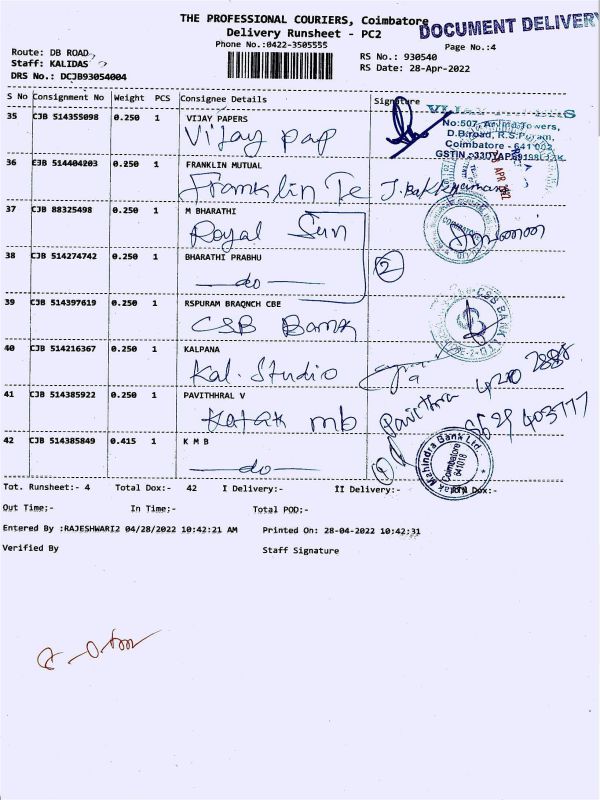 THE PROFESSIONAL COURIERS, Coimbatore
DOCUMENT DELIVERY
Delivery Runsheet - PC2
Phone No.:0422-3505555
Page No.:4
Route: DB ROAD
Staff: KALIDAS
DRS No.: DCJB93054004
RS No.: 930540
RS Date: 28-Apr-2022
S No Consignment No Weight PCS Consignee Details Signature
35 CJB 514355098 0.250 1 VIJAY PAPERS
Vijay pap
No:507, Towers,
D.B.road, R.S.Puram,
Coimbatore - 641 002
36 EJB 514404203 0.250 1 FRANKLIN MUTUAL
Franklin Te
37 CJB 88325498 0.250 1 M BHARATHI
Royal Sun
38 CJB 514274742 0.250 1 BHARATHI PRABHU
do
2
39 CJB 514397619 0.250 1 RSPURAM BRAQNCH CBE
CSB Bank
40 CJB 514216367 0.250 1 KALPANA
Kal. Studio
41 CJB 514385922 0.250 1 PAVITHHRAL V
Kotak mb
Pavithra
42 CJB 514385849 0.415 1 K M B
do
1
Mahindra Bank Ltd
Coimbatore
641018
Tot. Runsheet:- 4 Total Dox:- 42 I Delivery:- II Delivery:- Dox:-
Out Time;- In Time;- Total POD:-
Entered By :RAJESHWARI2 04/28/2022 10:42:21 AM Printed On: 28-04-2022 10:42:31
Verified By Staff Signature